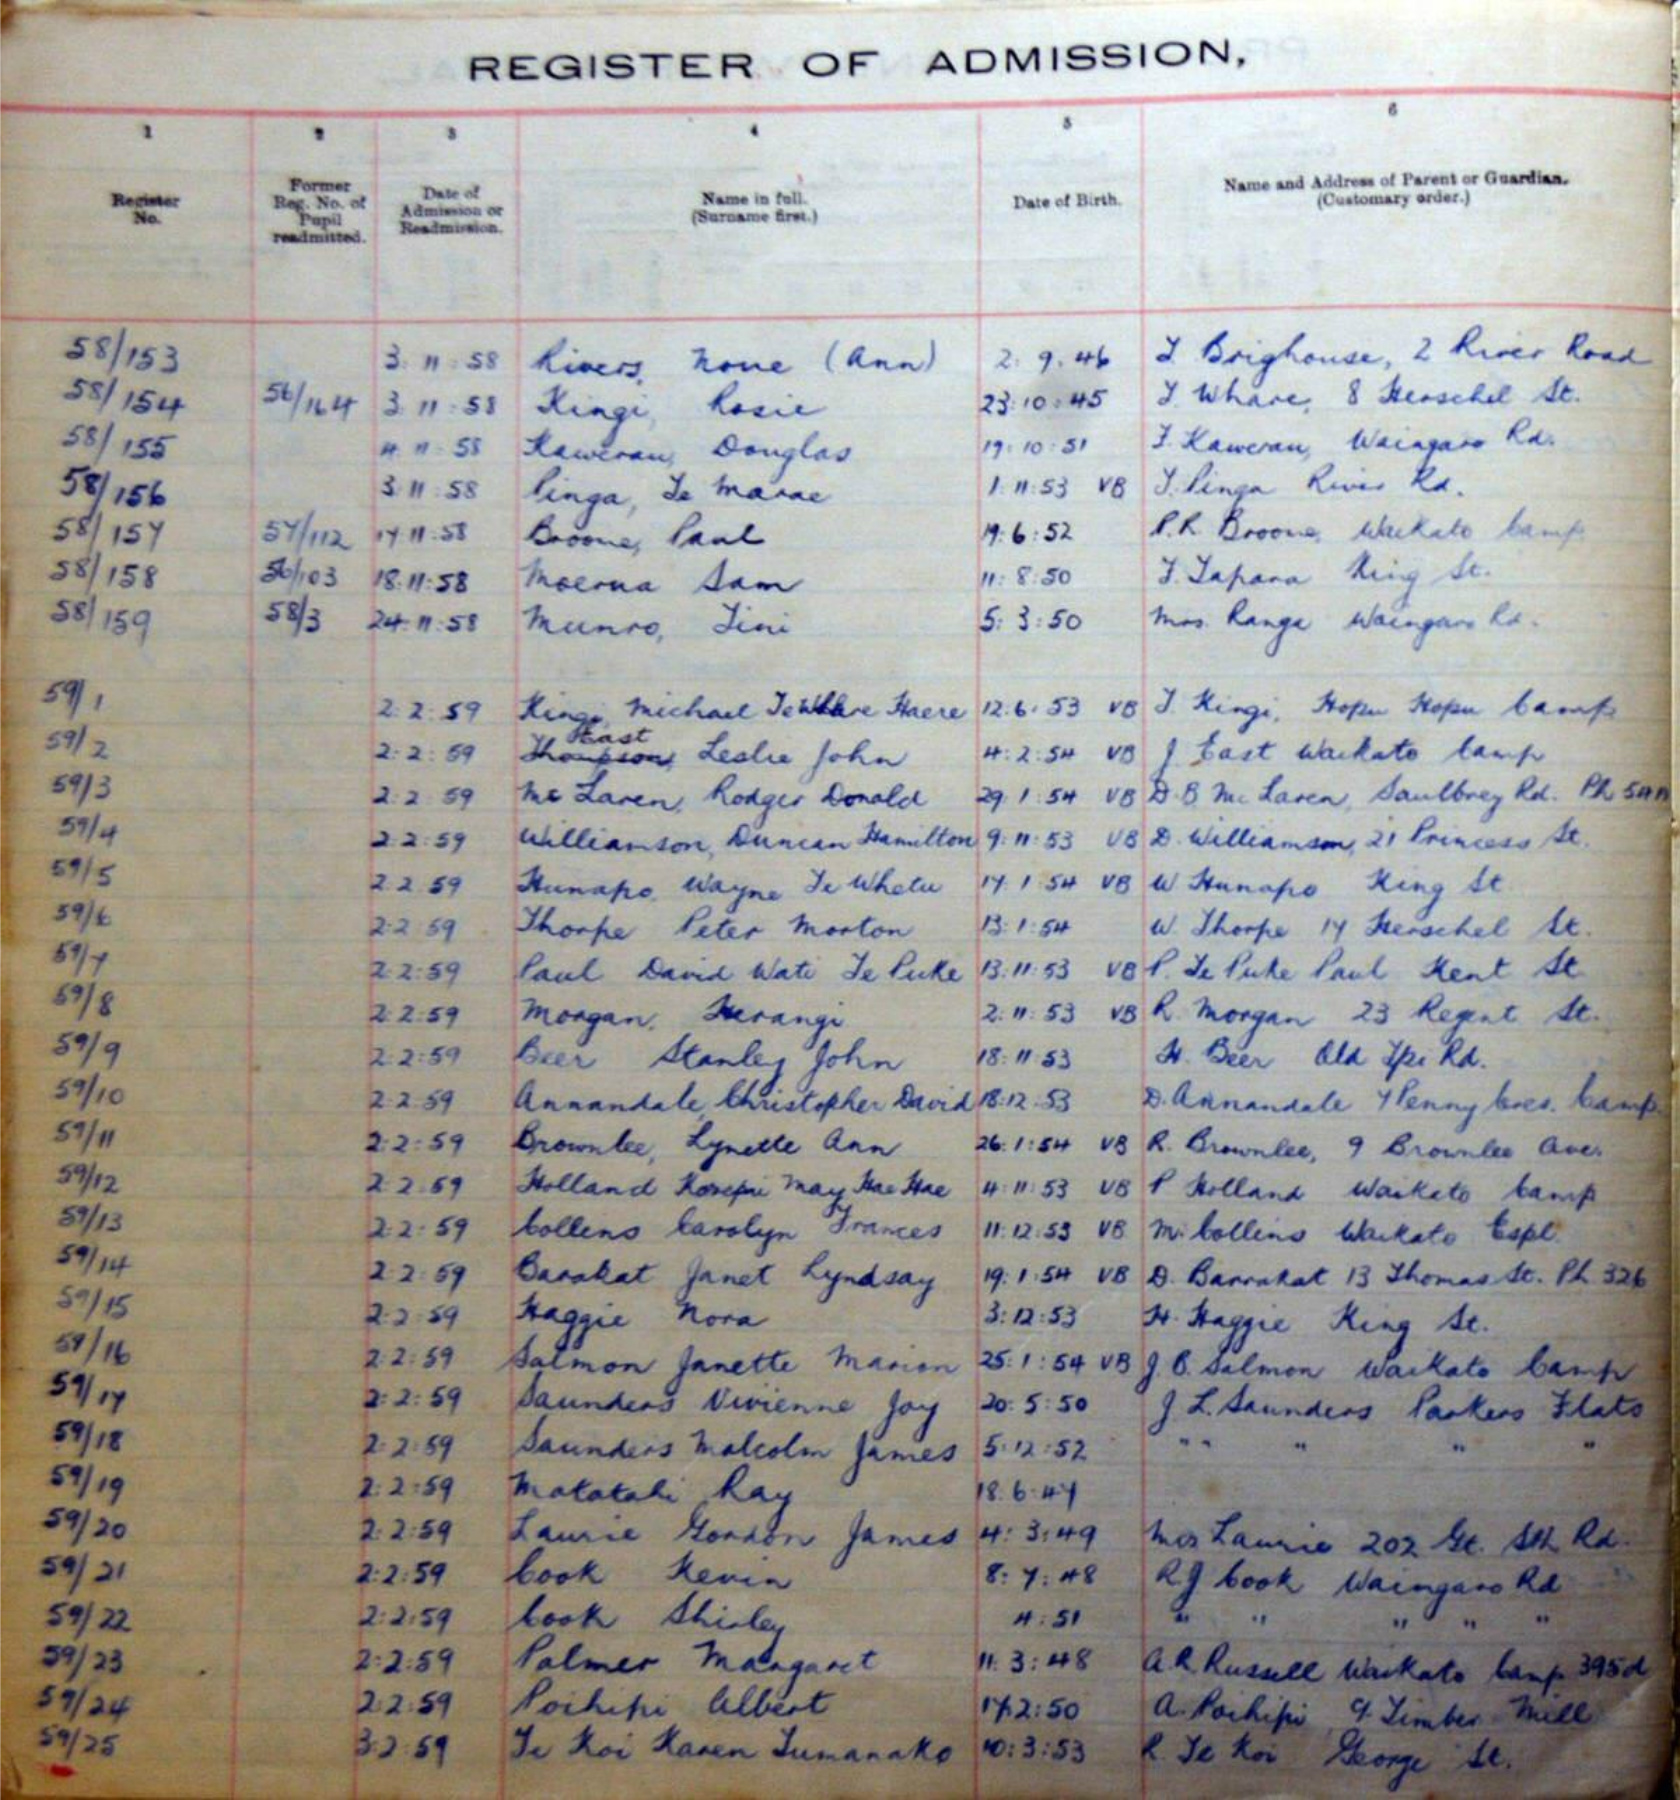 REGISTER OF ADMISSION,
1 2 3 4 5 6
Register No. Former Reg. No. of Pupil readmitted. Date of Admission or Readmission. Name in full. (Surname first.) Date of Birth. Name and Address of Parent or Guardian. (Customary order.)
58/153 3:11:58 Rivers, None (Ann) 2:9:46 T. Brighouse, 2 River Road
58/154 56/164 3:11:58 Kingi, Rosie 23:10:45 T. Whare, 8 Herschel St.
58/155 4:11:58 Kawerau, Douglas 19:10:51 F. Kawerau, Waingaro Rd.
58/156 3:11:58 Pinga, Te Marae 1:11:53 VB T. Pinga River Rd.
58/157 57/112 17:11:58 Broome, Paul 19:6:52 P.R. Broome, Waikato Camp
58/158 56/103 18:11:58 Moerua Sam 11:8:50 T. Tapara King St.
58/159 58/3 24:11:58 Munro, Tini 5:3:50 Mrs. Ranga Waingaro Rd.
59/1 2:2:59 Kingi, Michael Te Whare Haere 12:6:53 VB T. Kingi, Hopu Hopu Camp
East
59/2 2:2:59 Thompson, Leslie John 4:2:54 VB J East Waikato Camp
59/3 2:2:59 Mc Laren, Rodger Donald 29:1:54 VB D.B Mc Laren, Saulbrey Rd. Ph
59/4 2:2:59 Williamson, Duncan Hamilton 9:11:53 VB D. Williamson, 21 Princess St.
59/5 2:2:59 Hunapo, Wayne Te Whetu 17:1:54 VB W Hunapo King St
59/6 2:2:59 Thorpe Peter Morton 13:1:54 W. Thorpe 17 Herschel St.
59/7 2:2:59 Paul David Wati Te Puke 13:11:53 VB P. Te Puke Paul Kent St
59/8 2:2:59 Morgan, Herangi 2:11:53 VB R. Morgan 23 Regent St.
59/9 2:2:59 Beer Stanley John 18:11:53 H. Beer Old Rd.
59/10 2:2:59 Annandale, Christopher David 18:12:53 D. Annandale 7 Penny Cres. Camp
59/11 2:2:59 Brownlee, Lynette Ann 26:1:54 VB R. Brownlee, 9 Brownlee Ave.
59/12 2:2:59 Holland May Hae Hae 4:11:53 VB P Holland Waikato Camp
59/13 2:2:59 Collens Carolyn Frances 11:12:53 VB M. Collins Waikato Espl.
59/14 2:2:59 Barakat Janet Lyndsay 19:1:54 VB D. Barrakat 13 Thomas St. Ph 326
59/15 2:2:59 Haggie Nora 3:12:53 H. Haggie King St.
59/16 2:2:59 Salmon Janette Marion 25:1:54 VB J B. Salmon Waikato Camp
59/17 2:2:59 Saunders Vivienne Joy 20:5:50 J L. Saunders Parkers Flats
59/18 2:2:59 Saunders Malcolm James 5:12:52 " " " " "
59/19 2:2:59 Matatahi Ray 18:6:47
59/20 2:2:59 Laurie Gordon James 4:3:49 Mrs Laurie 202 Gt. Sth Rd.
59/21 2:2:59 Cook Kevin 8:7:48 R J Cook Waingaro Rd
59/22 2:2:59 Cook Shirley 4:51 " " " " "
59/23 2:2:59 Palmer Margaret 11:3:48 A.R. Russell Waikato Camp 395d
59/24 2:2:59 Poihipi Albert 17:2:50 A. Poihipi Timber Mill
59/25 3:2:59 Te Koi Karen Tumanako 10:3:53 R. Te Koi George St.